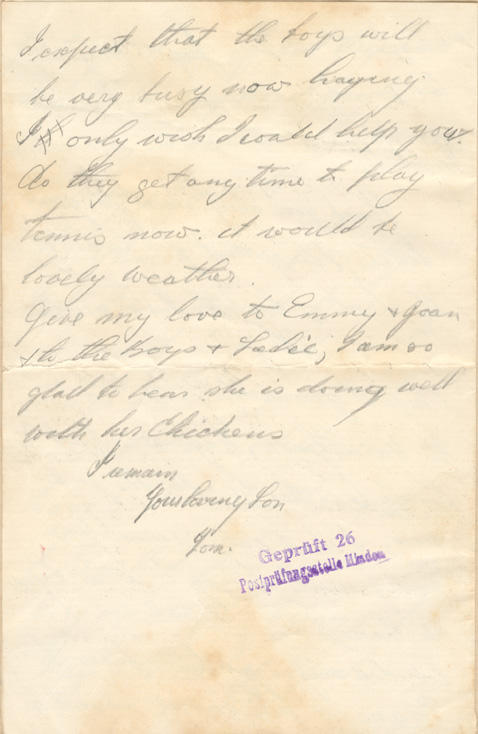 I expect that the boys will
be very busy now haying
I only wish I could help you.
do they get any time to play
tennis now. it would be
lovely weather.
Give my love to Emmy & Joan
& to the Boys & Sadie, I am so
glad to hear she is doing well
with her Chickens
I remain
Your loving Son
Tom.
Geprüft 26
Postprüfungsstelle Minden